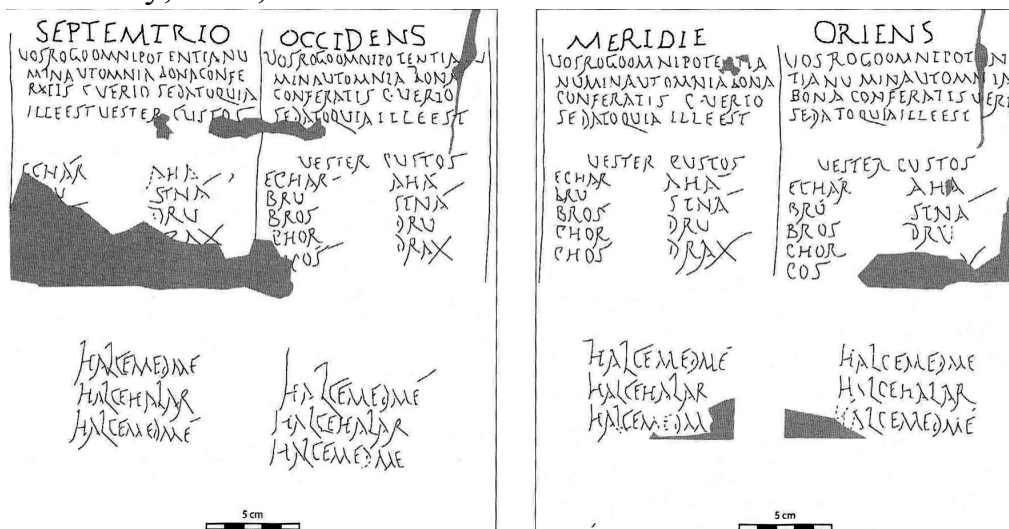 SEPTEMTRIO
VOS ROGO OMNIPOTENTIA NU
MINA UT OMNIA BONA CONFE
RATIS C VERIO SEDATO QUIA
ILLE EST VESTER CUSTOS
ECHAR AHA
STNA
DRU
DRAX
HALCEMEDME
HALCEHALAR
HALCEMEDME
OCCIDENS
VOS ROGO OMNIPOTENTIA NU
MINA UT OMNIA BONA
CONFERATIS C VERIO
SEDATO QUIA ILLE EST
VESTER CUSTOS
ECHAR AHA
BRU STNA
BROS DRU
CHOR DRAX
COS
HALCEMEDME
HALCEHALAR
HALCEMEDME
5 cm
MERIDIE
VOS ROGO OMNIPOTENTIA
NUMINA UT OMNIA BONA
CONFERATIS C VERIO
SEDATO QUIA ILLE EST
VESTER CUSTOS
ECHAR AHA
BRU STNA
BROS DRU
CHOR DRAX
CHOS
HALCEMEDME
HALCEHALAR
HALCEMEDM
ORIENS
VOS ROGO OMNIPOTEN
TIA NUMINA UT OMNIA
BONA CONFERATIS VERI
SEDATO QUIA ILLE EST
VESTER CUSTOS
ECHAR AHA
BRU STNA
BROS DRU
CHOR
COS
HALCEMEDME
HALCEHALAR
HALCEMEDME
5 cm